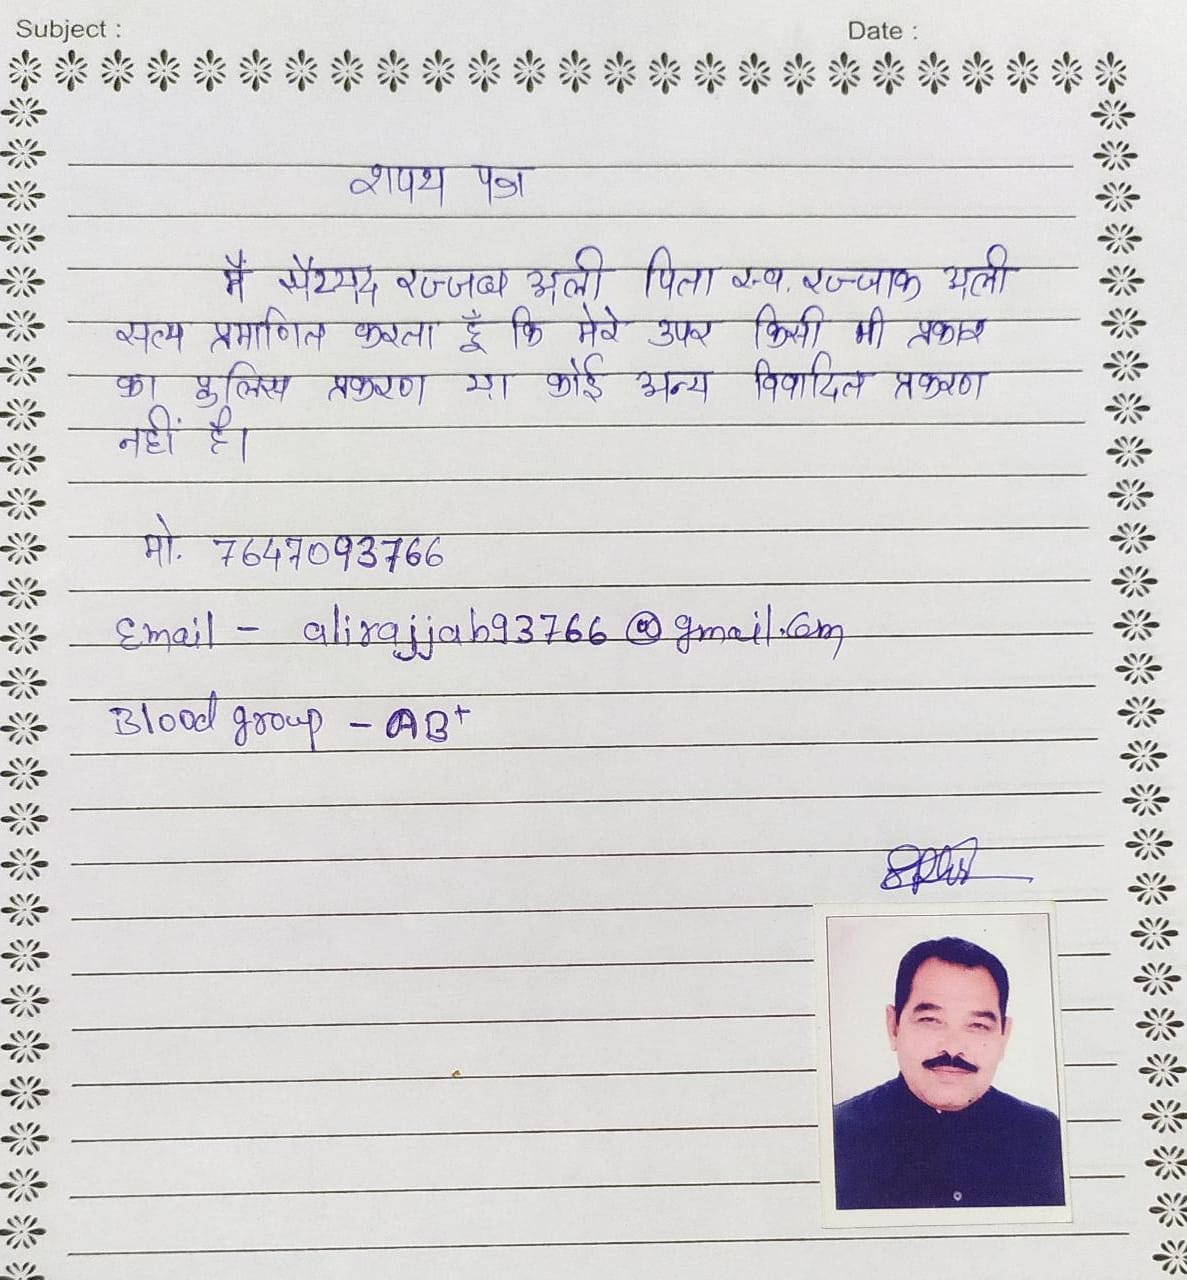 Subject : Date :
शपथ पत्र
मैं सैय्यद रज्जब अली पिता स्व. रज्जाक अली
सत्य प्रमाणित करता हूँ कि मेरे उपर किसी भी प्रकार
का पुलिस प्रकरण या कोई अन्य विवादित प्रकरण
नहीं है।
मो. 7647093766
Email - alirajjab93766@gmail.com
Blood group - AB+